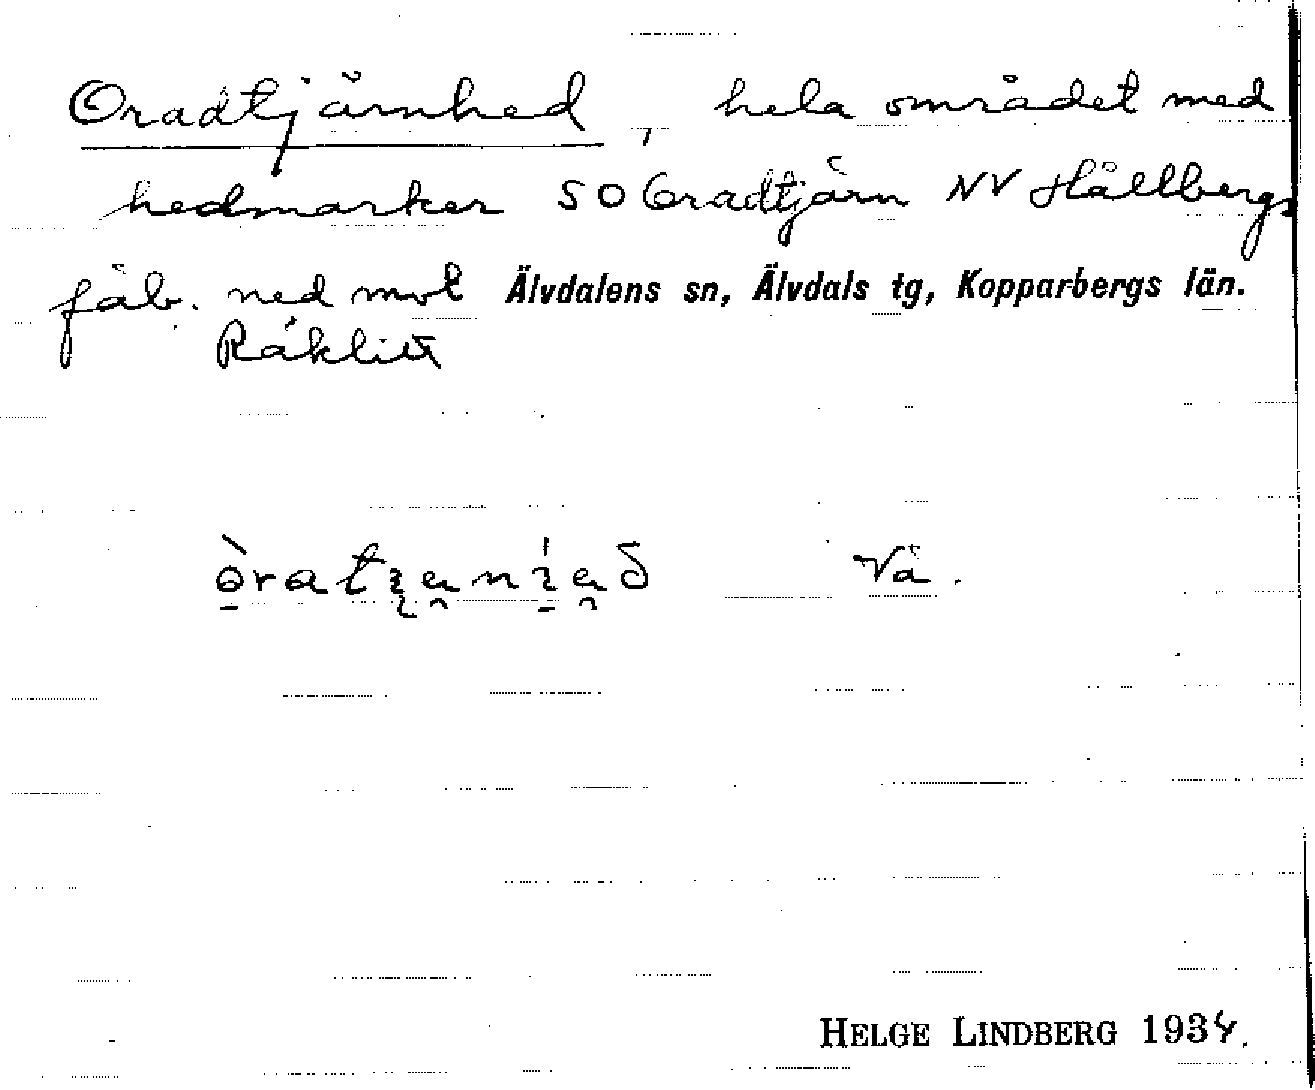 Oradtjärnhed, hela området med
hedmarker SO Oradtjärn NV Hållbergs
fäb. ned mot Älvdalens sn, Älvdals tg, Kopparbergs län.
Råklitt
Vä.
HELGE LINDBERG 1934.